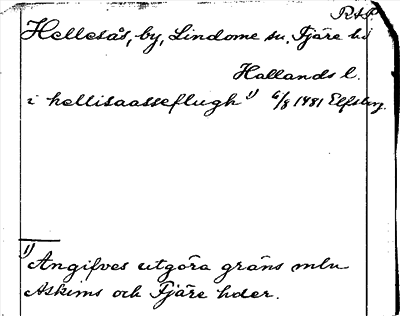 RAP.
Hellesås, by, Lindome sn. Fjäre hd
Hallands l.
i hellisaasseflugh 1) 6/8 1481 Elfsborg.
1) Angifves utgöra gräns mln
Askims och Fjäre hder.